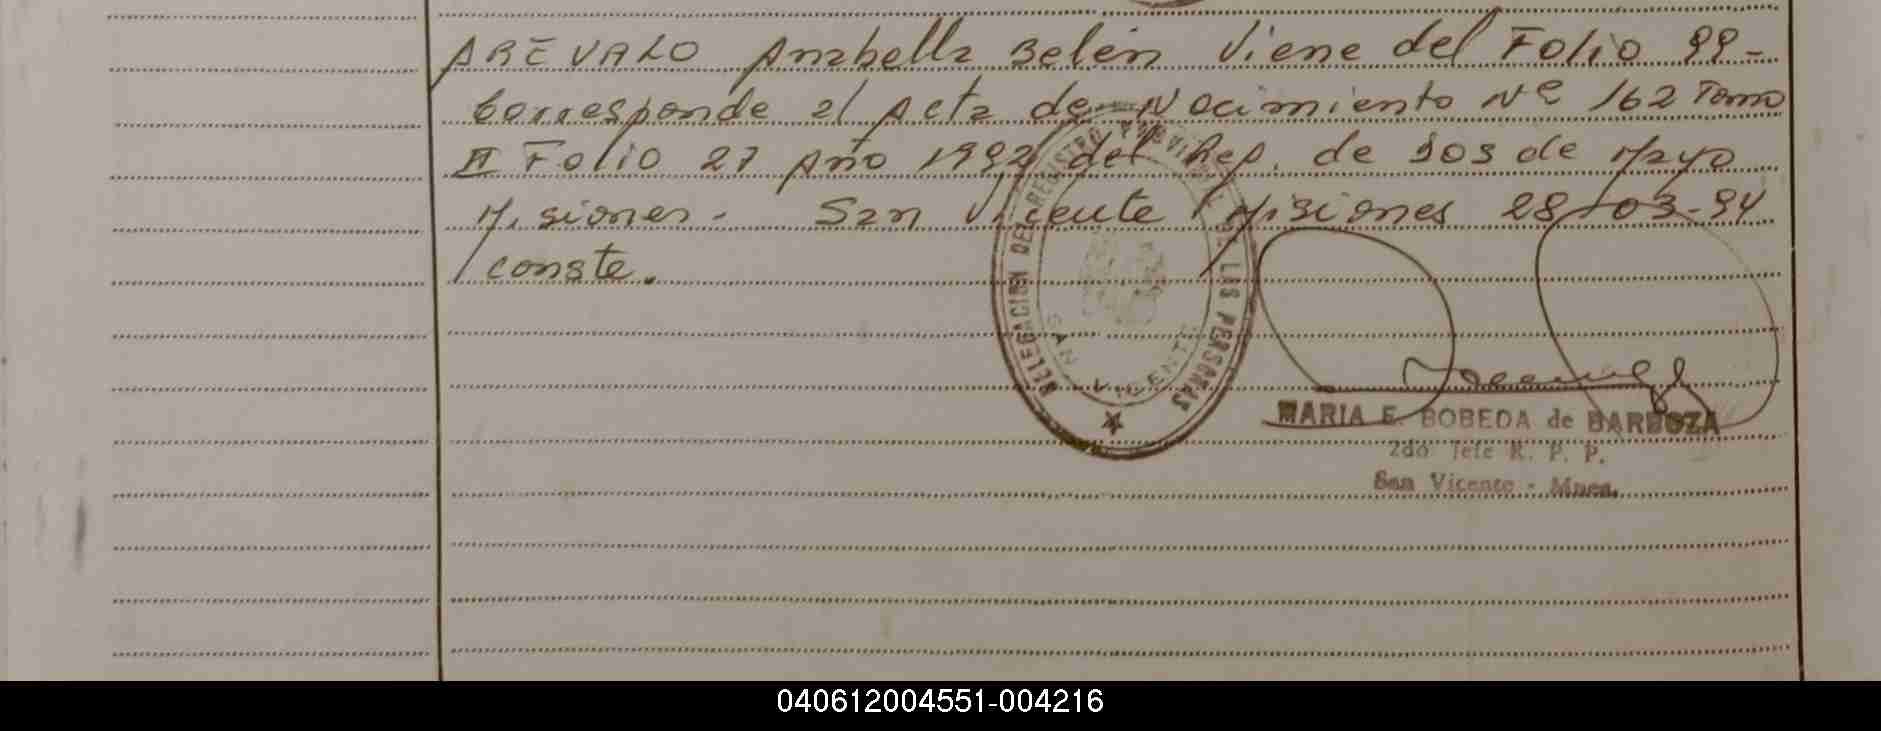 AREVALO Anabella Belén Viene del Folio 99-
Corresponde al Acta de Nacimiento Nº 162 Tomo
II Folio 27 Año 1992 del Rep. de Dos de Mayo
Misiones - San Vicente Misiones 28-03-94
conste.
DELEGACION DEL REGISTRO PROVINCIAL DE LAS PERSONAS
SAN VICENTE
MARIA E. BOBEDA de BARBOZA
2do Jefe R. P. P.
San Vicente - Mnes.
040612004551-004216